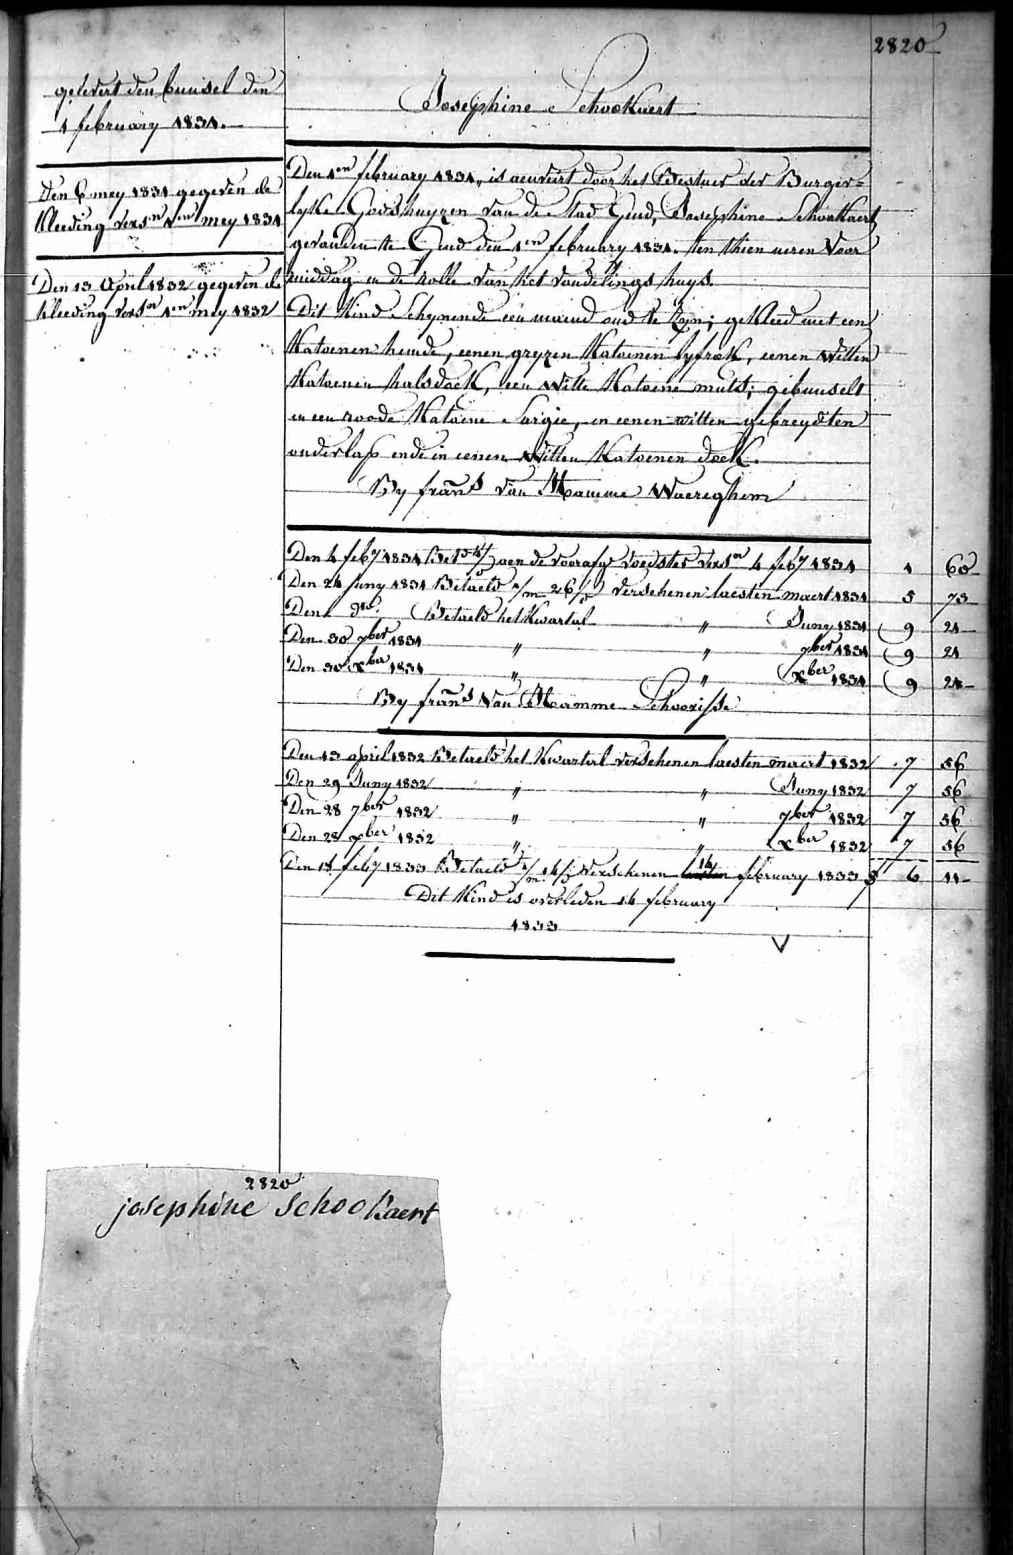 2820
gelevert den bunsel den
1 february 1831.
Den 6 mey 1831 gegeven de
Kleeding versn 1en mey 1831
Den 13 April 1832 gegeven de
Kleeding versn 1en mey 1832
Josephine Schookaert
Den 1en february 1831, is aenveird door het Bestuer der Burger=
lyke Godshuyzen van de Stad Gend, Josephine Schookaert
gevonden te Gend den 1en february 1831. ten thien ueren voor
middag in de rolle van het vondelings huys.
Dit Kind schynende een maend oud te zyn; gekleed met een
Katoenen hemde, eenen gryzen Katoenen lyfrok, eenen witten
Katoenen halsdoek, een witte Katoene muts; gebunselt
in een roode Katoene Sargie, in eenen witten gebreydten
onderlap ende in eenen witten Katoenen doek.
By frans van Hamme Waereghem
Den 4 feby 1831 aen de voorafg voedster versn 4 feby 1831 1 60
Den 24 Juny 1831 Betaeld 26 verschenen laesten maert 1831 5 73
Den do. Betaeld het Kwartal " Juny 1831 9 21
Den 30 7ber 1831 " " 7ber 1831 9 21
Den 30 xber 1831 " " xber 1831 9 21
By frans van Hamme Schoorisse
Den 13 april 1832 Betaeld het Kwartal verschenen laesten maert 1832 7 56
Den 29 Juny 1832 " " Juny 1832 7 56
Den 28 7ber 1832 " " 7ber 1832 7 56
Den 28 xber 1832 " " xber 1832 7 56
Den 18 feby 1833 Betaeld verschenen 14 february 1833 6 11
Dit Kind is overleden 14 february
1833
2820
josephine schookaert